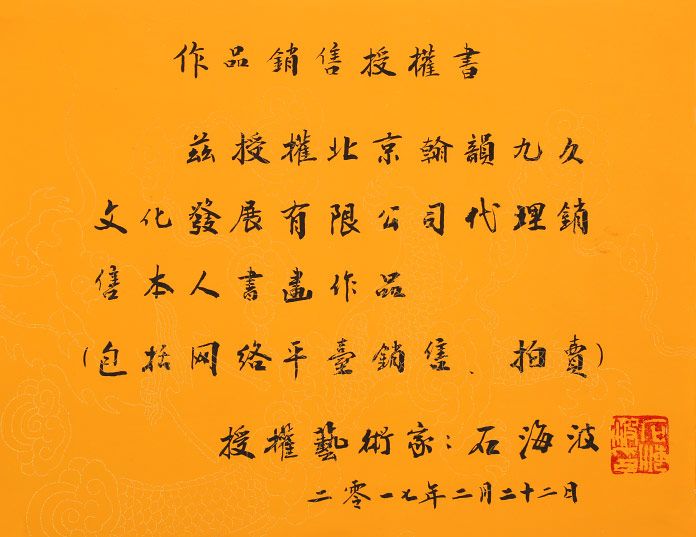 作品銷售授權書
茲授權北京翰韻九久
文化發展有限公司代理銷
售本人書畫作品
(包括网络平臺銷售、拍賣)
授權藝術家:石海波
二零一七年二月二十二日